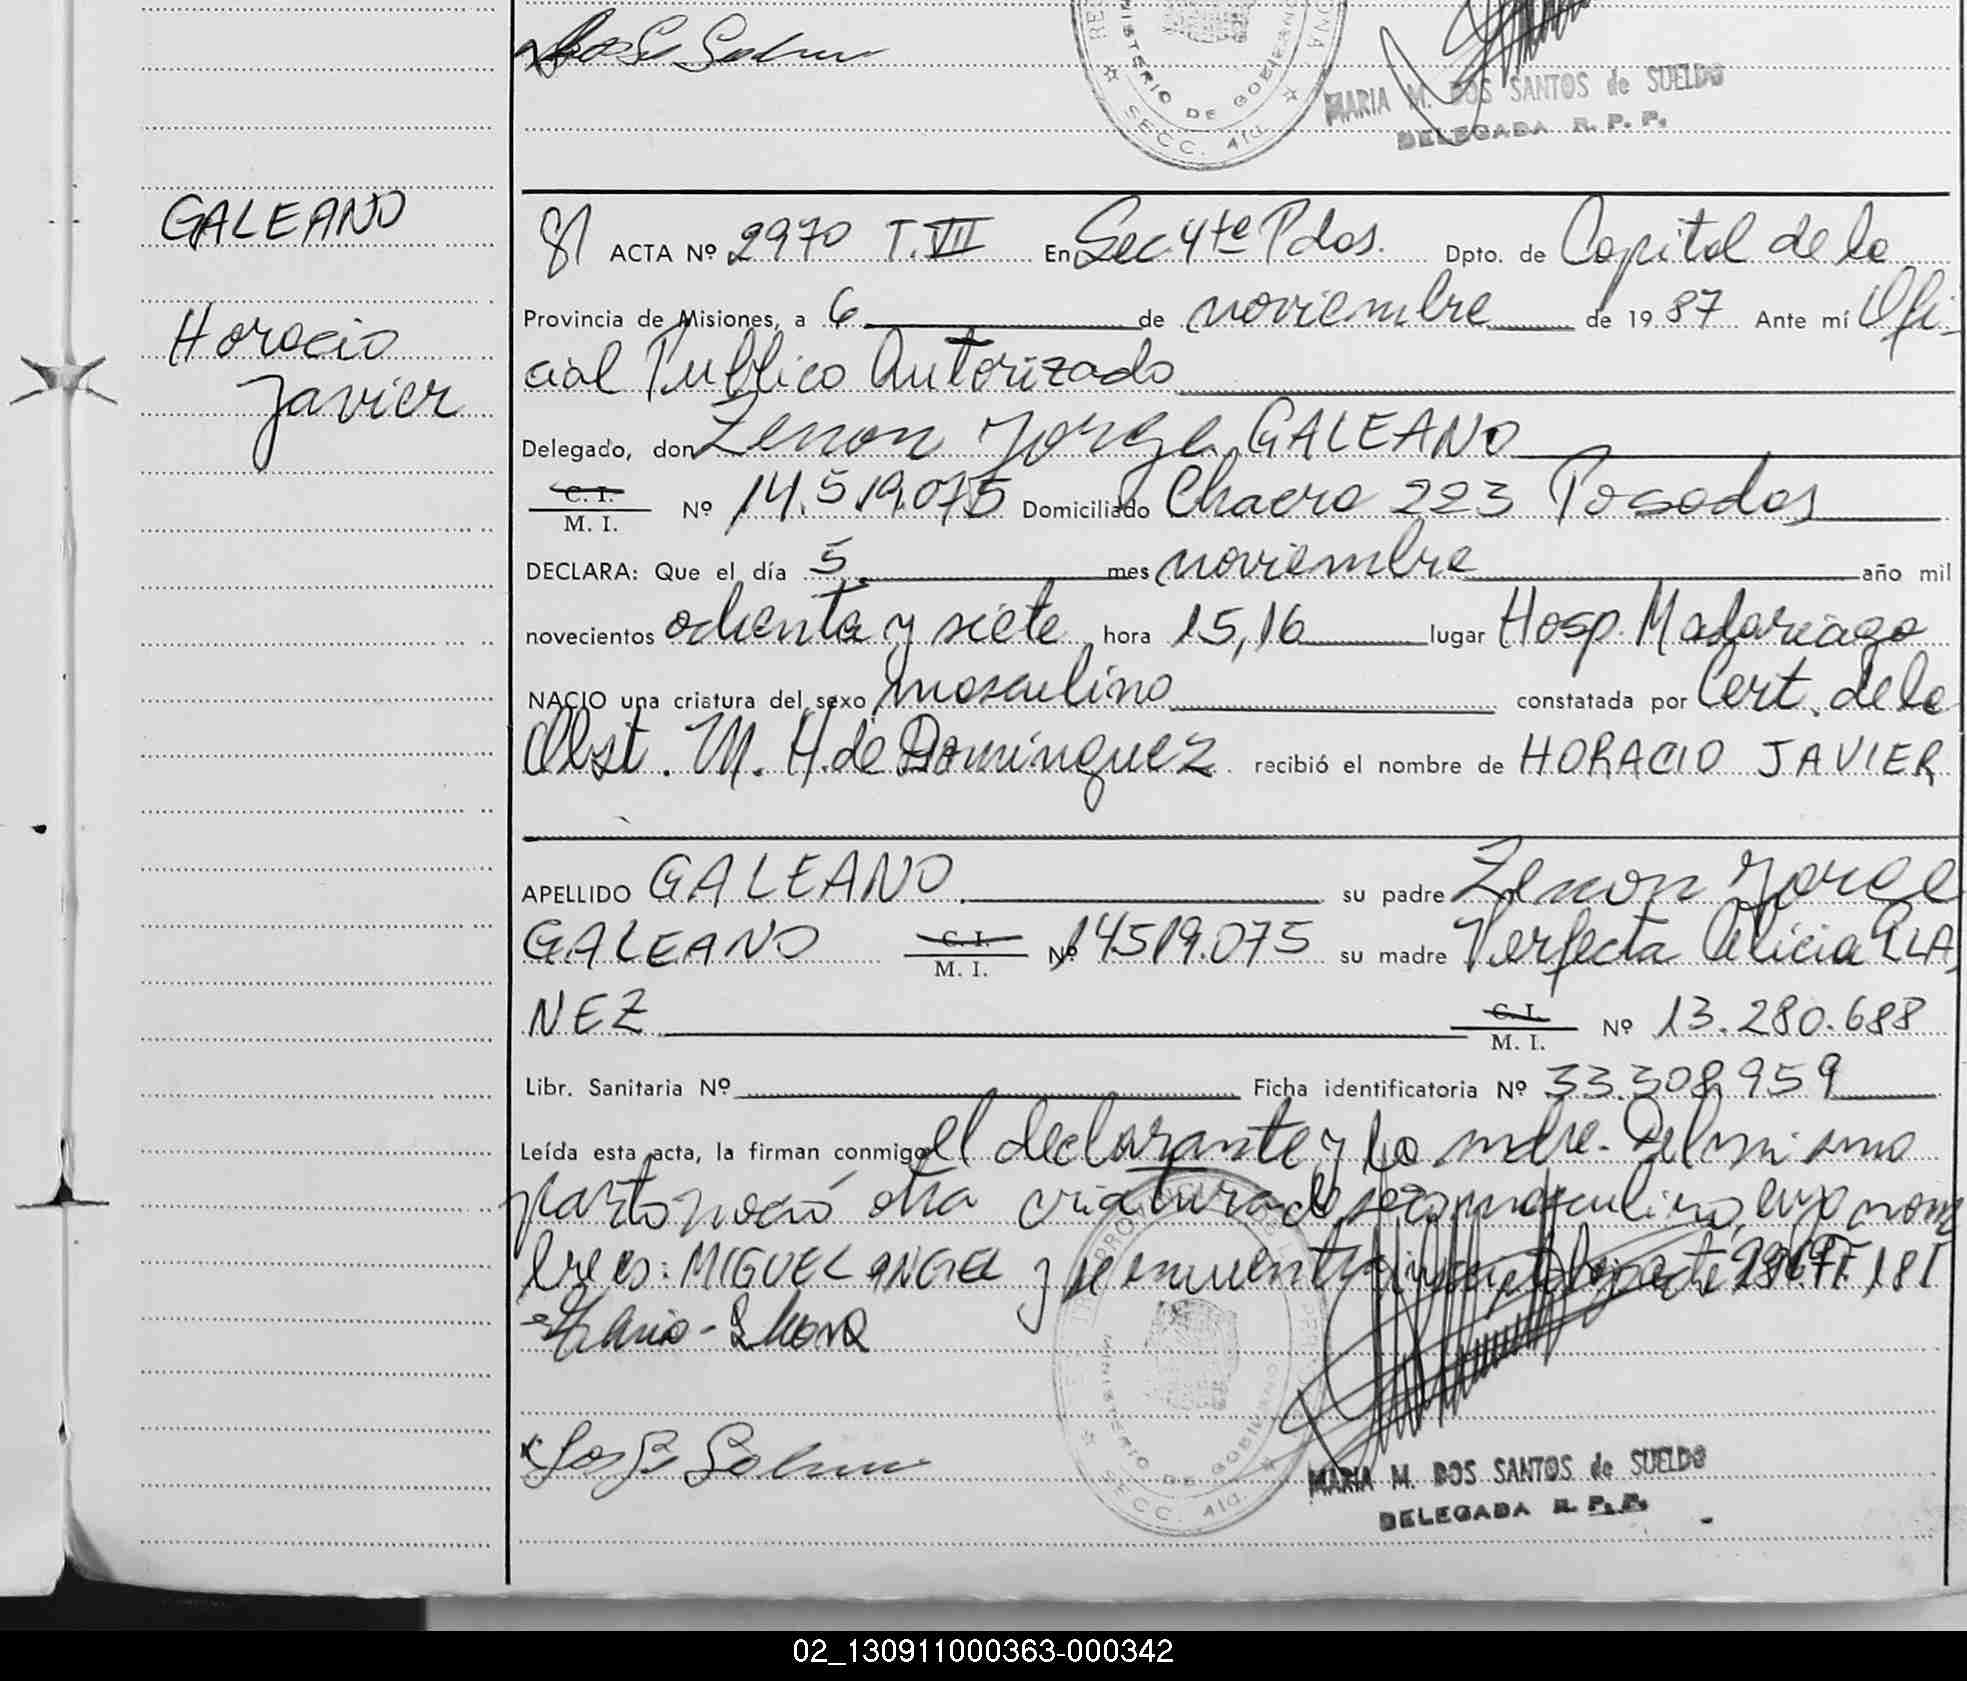 MINISTERIO DE GOBIERNO
SECC. 4ta.
MARIA M. DOS SANTOS de SUELDO
DELEGADA R. P. P.
GALEANO
Horacio
Javier
81 ACTA Nº 2970 T. VII En Sec. 4te Pdas. Dpto. de Capital de la
Provincia de Misiones, a 6 de noviembre de 1987 Ante mí Ofi-
cial Publico Autorizado
Delegado, don Zenon Jorge GALEANO
C. I. M. I. Nº 14.519.075 Domiciliado Chacra 223 Posadas
DECLARA: Que el día 5 mes noviembre año mil
novecientos ochenta y siete hora 15,16 lugar Hosp. Madariaga
NACIO una criatura del sexo masculino constatada por Cert. de la
Obst. M. H. de Dominguez recibió el nombre de HORACIO JAVIER
APELLIDO GALEANO su padre Zenon Jorge
GALEANO C. I. M. I. Nº 14519.075 su madre Perfecta Alicia LLA
NEZ C. I. M. I. Nº 13.280.688
Libr. Sanitaria Nº Ficha identificatoria Nº 33.308.959
Leída esta acta, la firman conmigo el declarante y la madre. Del mismo
parto nació otra criatura de sexo masculino, cuyo nom
bre es: MIGUEL ANGEL y se encuentra
MINISTERIO DE GOBIERNO
SECC. 4ta.
MARIA M. DOS SANTOS de SUELDO
DELEGADA R. P. P.
02_130911000363-000342